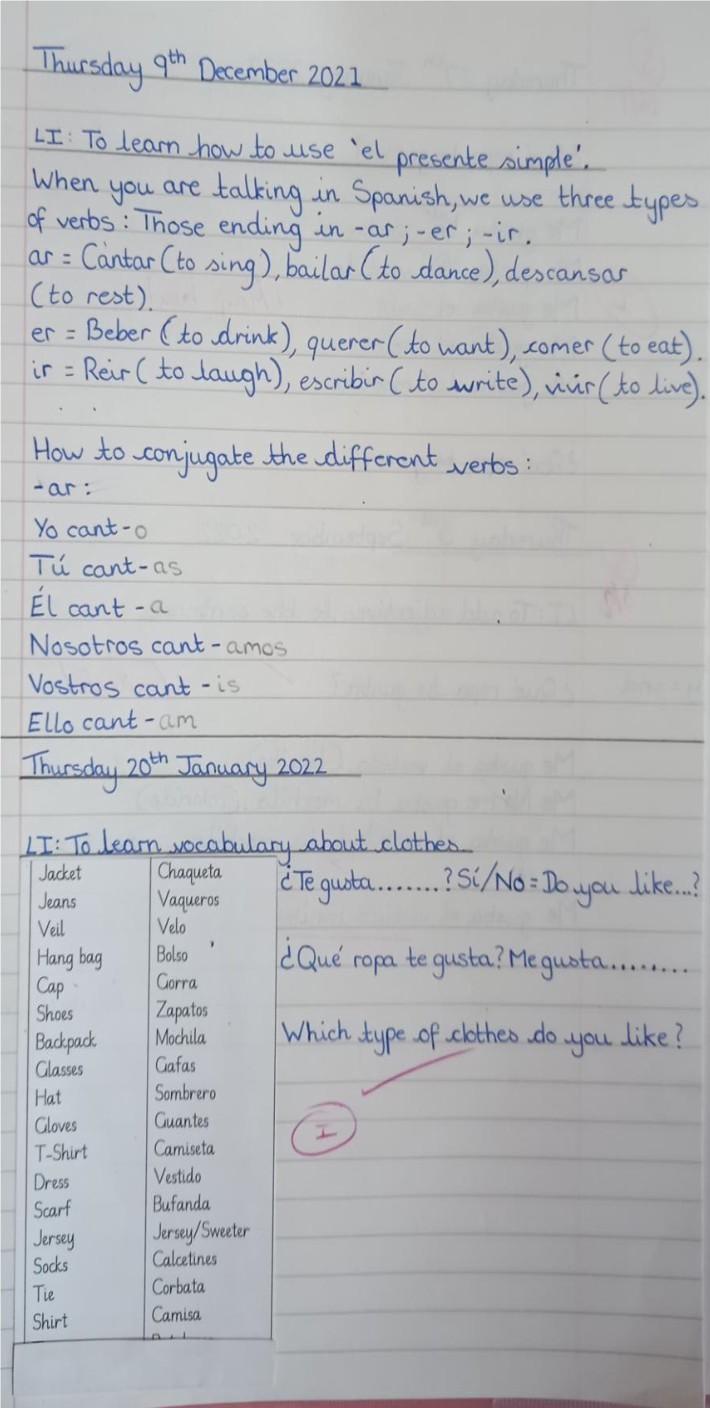 Thursday 9th December 2021
LI: To learn how to use 'el presente simple'.
When you are talking in Spanish, we use three types
of verbs: Those ending in -ar ; -er ; -ir.
ar = Cantar (to sing), bailar (to dance), descansar
(to rest).
er = Beber (to drink), querer (to want), comer (to eat).
ir = Reir (to laugh), escribir (to write), vivir (to live).
How to conjugate the different verbs:
-ar:
Yo cant-o
Tú cant-as
Él cant-a
Nosotros cant-amos
Vostros cant-is
Ello cant-am
Thursday 20th January 2022
LI: To learn vocabulary about clothes
Jacket Chaqueta
Jeans Vaqueros
Veil Velo
Hang bag Bolso
Cap Gorra
Shoes Zapatos
Backpack Mochila
Glasses Gafas
Hat Sombrero
Gloves Guantes
T-Shirt Camiseta
Dress Vestido
Scarf Bufanda
Jersey Jersey/Sweeter
Socks Calcetines
Tie Corbata
Shirt Camisa
¿Te gusta.......? Sí/No = Do you like...?
¿Qué ropa te gusta? Me gusta.........
Which type of clothes do you like?
I